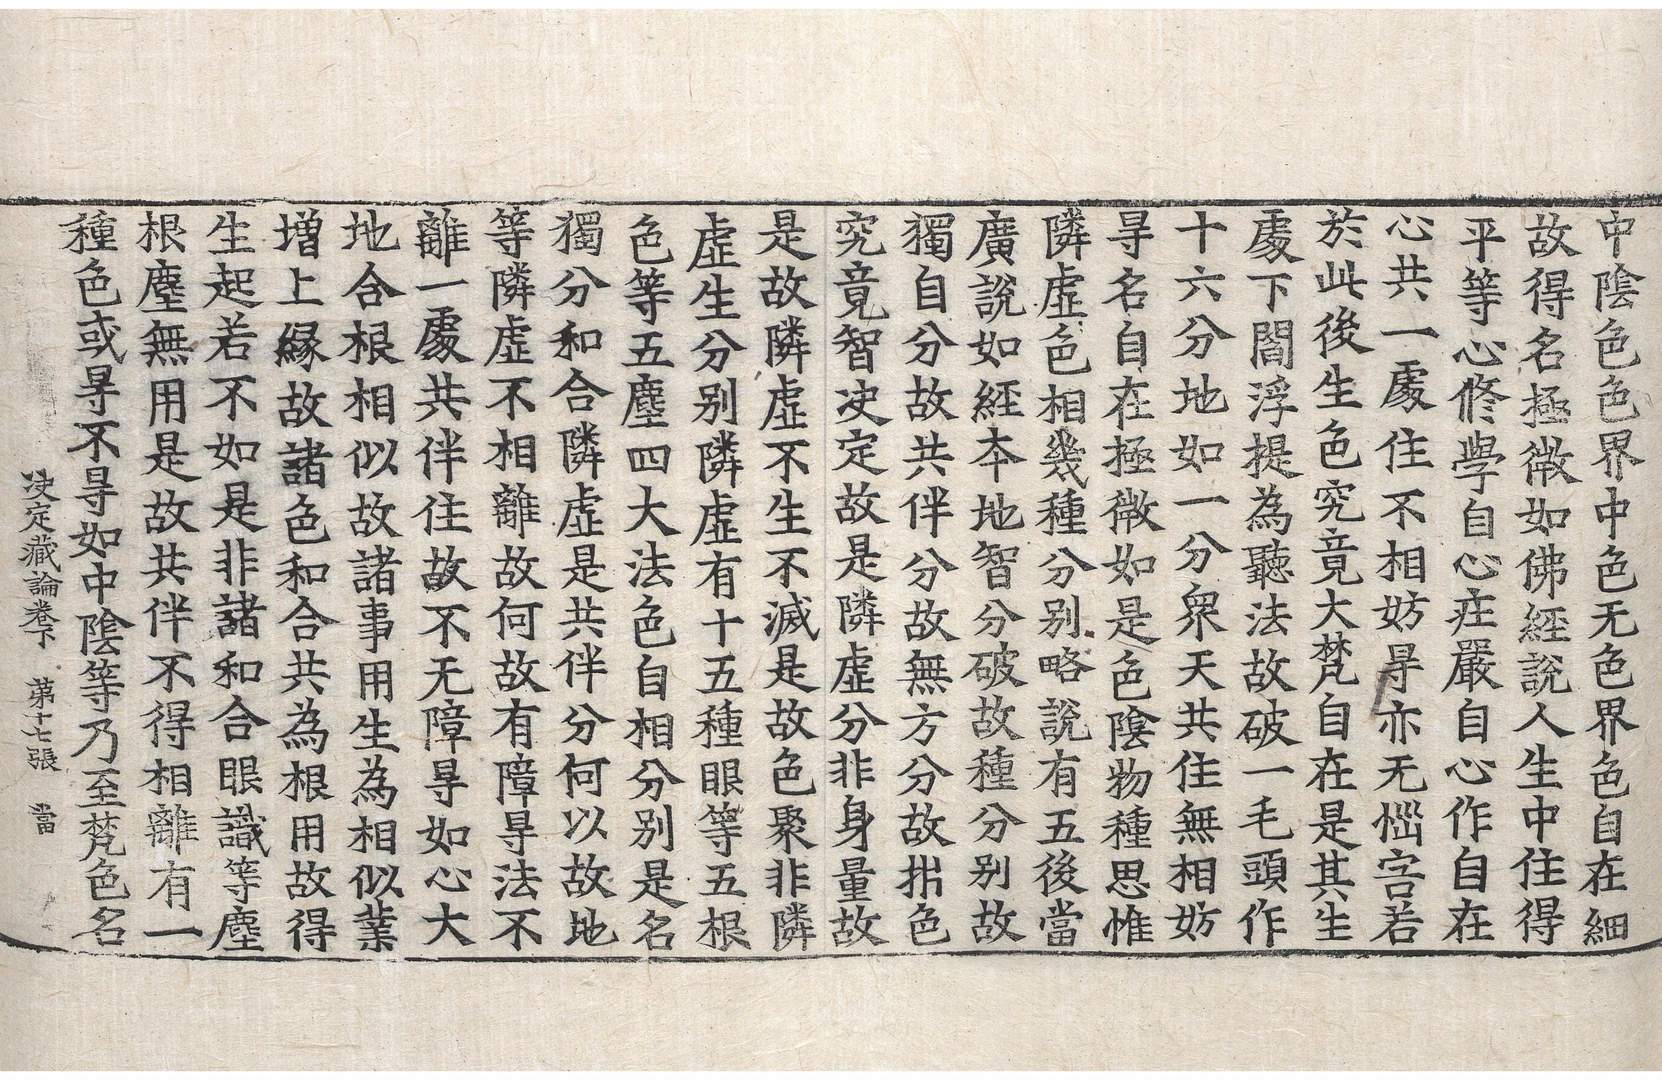 中陰色色界中色无色界色自在細
故得名極微如佛經說人生中住得
平等心修學自心庄嚴自心作自在
心共一處住不相妨㝵亦无惱害若
於此後生色究竟大梵自在是其生
處下閻浮提為聽法故破一毛頭作
十六分地如一分衆天共住無相妨
㝵名自在極微如是色陰物種思惟
隣虛色相幾種分別略說有五後當
廣說如經本地智分破故種分別故
獨自分故共伴分故無方分故拙色
究竟智决定故是隣虛分非身量故
是故隣虛不生不滅是故色聚非隣
虛生分別隣虛有十五種眼等五根
色等五塵四大法色自相分別是名
獨分和合隣虛是共伴分何以故地
等隣虛不相離故何故有障㝵法不
離一處共伴住故不无障㝵如心大
地合根相似故諸事用生為相似業
增上縁故諸色和合共為根用故得
生起若不如是非諸和合眼識等塵
根塵無用是故共伴不得相離有一
種色或㝵不㝵如中陰等乃至梵色名
决定藏論卷下　第十七張　當